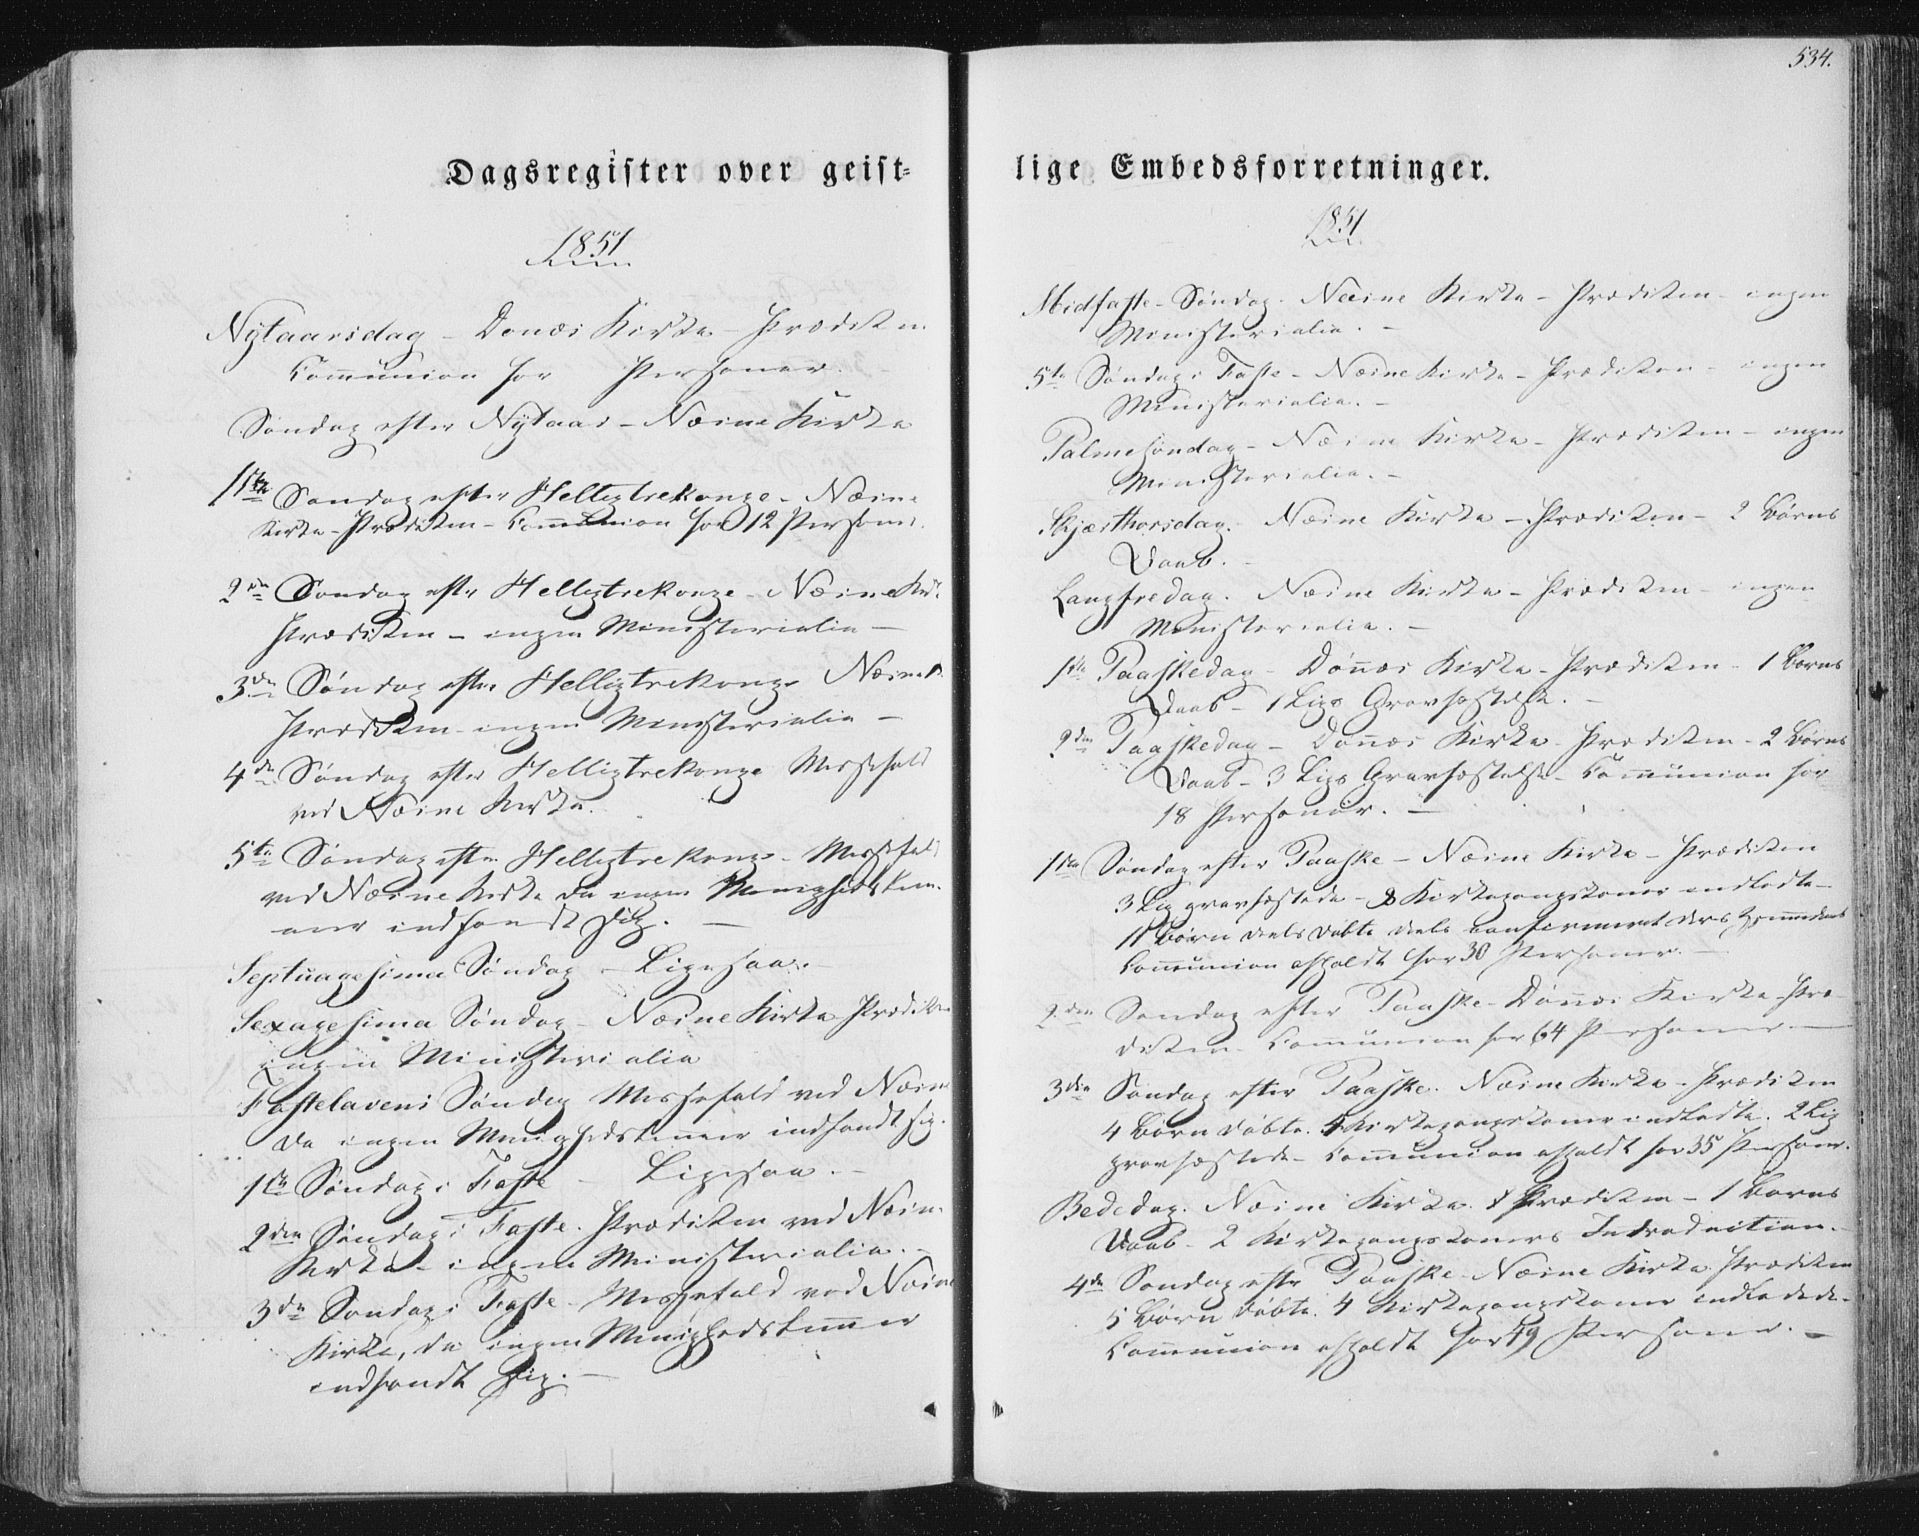 Dagsregister over geist-
1851
Nytaarsdag - Dønæs Kirke - Prædiken
Communion for Personer.
Søndag efter Nytaar - Næsne Kirke
1ste Søndag efter Helligtrekonge - Næsne
Kirke - Prædiken - Communion for 12 Personer.
2den Søndag efter Helligtrekonge - Næsne Kirke
Prædiken - ingen Ministerialia -
3die Søndag efter Helligtrekonge Næsne K.
Prædiken - ingen Ministerialia -
4de Søndag efter Helligtrekonge Messefald
ved Næsne Kirke.
5te Søndag efter Helligtrekonge - Messefald
ved Næsne Kirke da ingen Menighedslem-
mer indfandt sig. -
Septuagesima Søndag - Ligesaa. -
Sexagesima Søndag - Næsne Kirke Prædiken
ingen Ministerialia
Fastelavens Søndag Messefald ved Næsne
da ingen Menighedslemmer indfandt sig.
1ste Søndag i Faste - Ligesaa. -
2den Søndag i Faste. Prædiken ved Næsne
Kirke - ingen Ministerialia. -
3die Søndag i Faste - Messefald ved Næsne
Kirke, da ingen Menighedslemmer
indfandt sig. -
534.
lige Embedsforretninger.
1851
Midfaste - Søndag. Næsne Kirke - Prædiken - ingen
Ministerialia. -
5te Søndag i Faste - Næsne Kirke - Prædiken - ingen
Ministerialia. -
Palmesøndag - Næsne Kirke - Prædiken - ingen
Ministerialia. -
Skjærthorsdag. Næsne Kirke - Prædiken - 2 Børns
Daab. -
Langfredag. Næsne Kirke - Prædiken - ingen
Ministerialia. -
1ste Paaskedag - Dønnæs Kirke - Prædiken - 1 Barns
Daab - 1 Ligs Gravfæstelse. -
2den Paaskedag - Dønnæs Kirke - Prædiken - 2 Børns
Daab - 3 Ligs Gravfæstelse - Communion for
18 Personer. -
1ste Søndag efter Paaske - Næsne Kirke - Prædiken
3 Lig gravfæstede - 8 Kirkegangskoner indledte -
11 Børn deels døbte deels confirmeret deres Hjemmedaab
Communion afholdt for 30 Personer. -
2den Søndag efter Paaske - Dønnæs Kirke - Præ-
diken - Communion for 64 Personer -
3die Søndag efter Paaske. Næsne Kirke - Prædiken
4 Børn døbte. 4 Kirkegangskoner indledte. 2 Lig
gravfæstede - Communion afholdt for 35 Personer.
Bededag. Næsne Kirke. Prædiken - 1 Barns
Daab - 2 Kirkegangskoners Introduction. -
4de Søndag efter Paaske - Næsne Kirke. Prædiken
5 Børn døbte. 4 Kirkegangskoner indledede -
Communion afholdt for 49 Personer. -